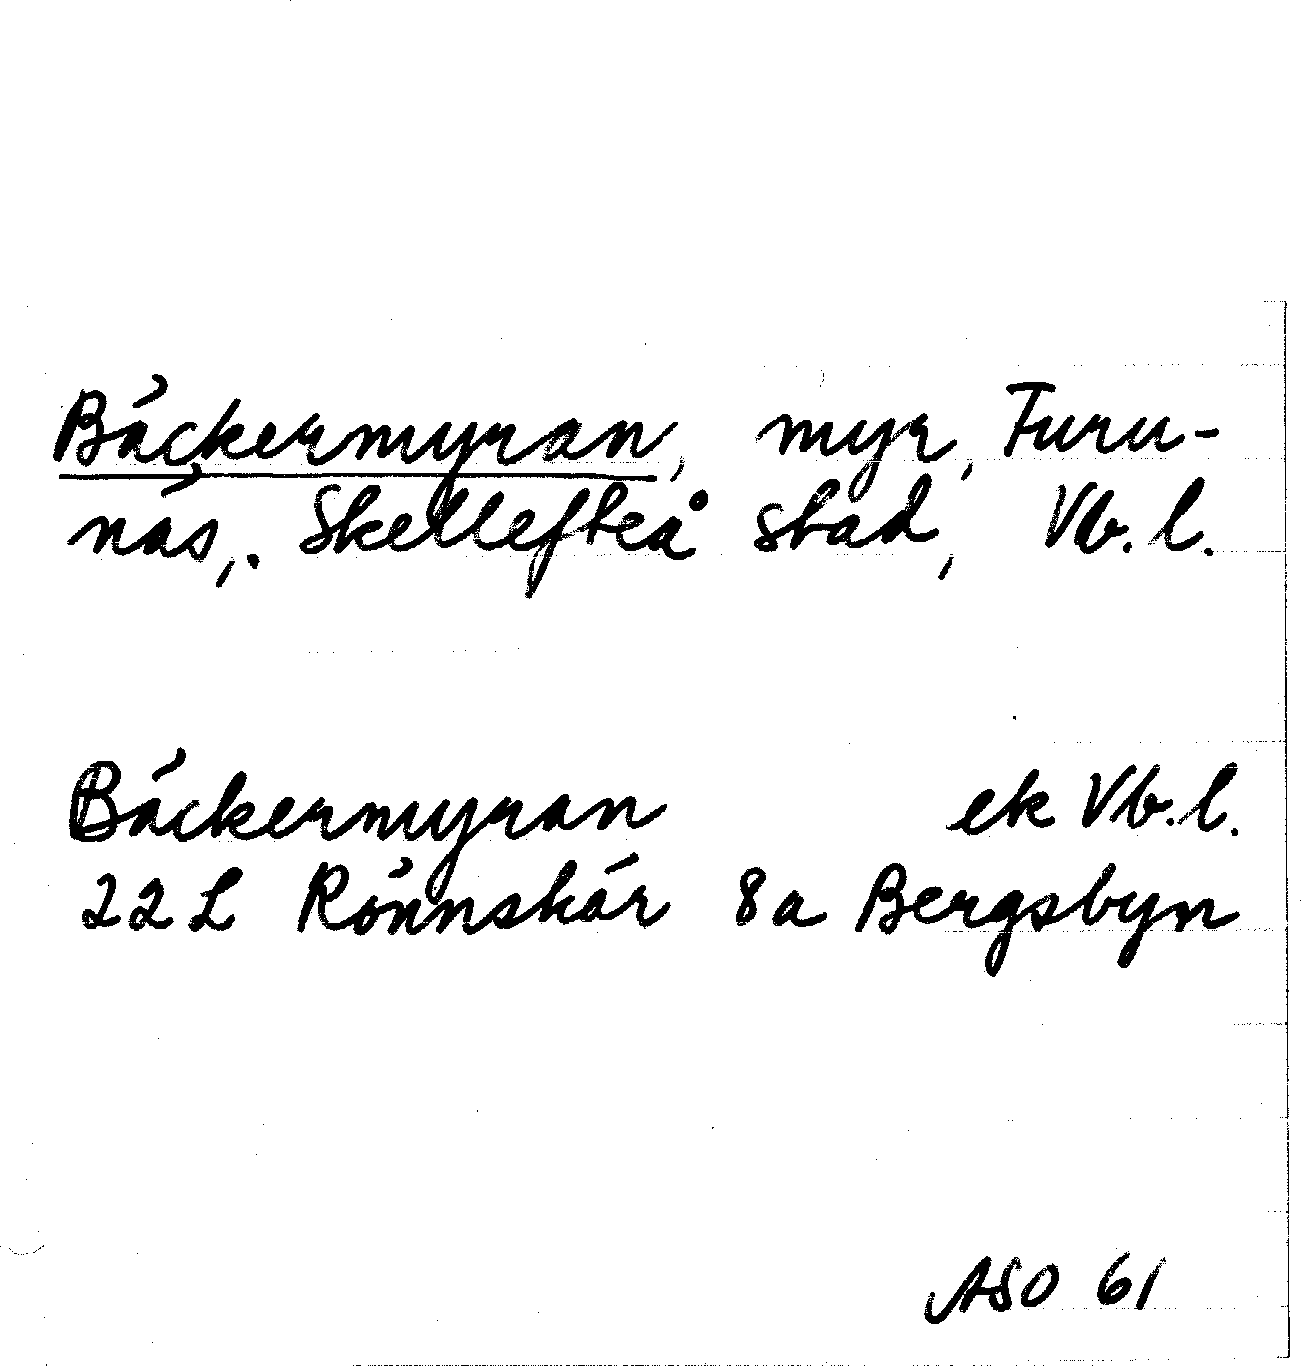 Bäckermyran, myr, Furu-
näs,. Skellefteå stad, Vb. l.
Bäckermyran ek Vb. l.
22 L Rönnskär 8a Bergsbyn
ASO 61